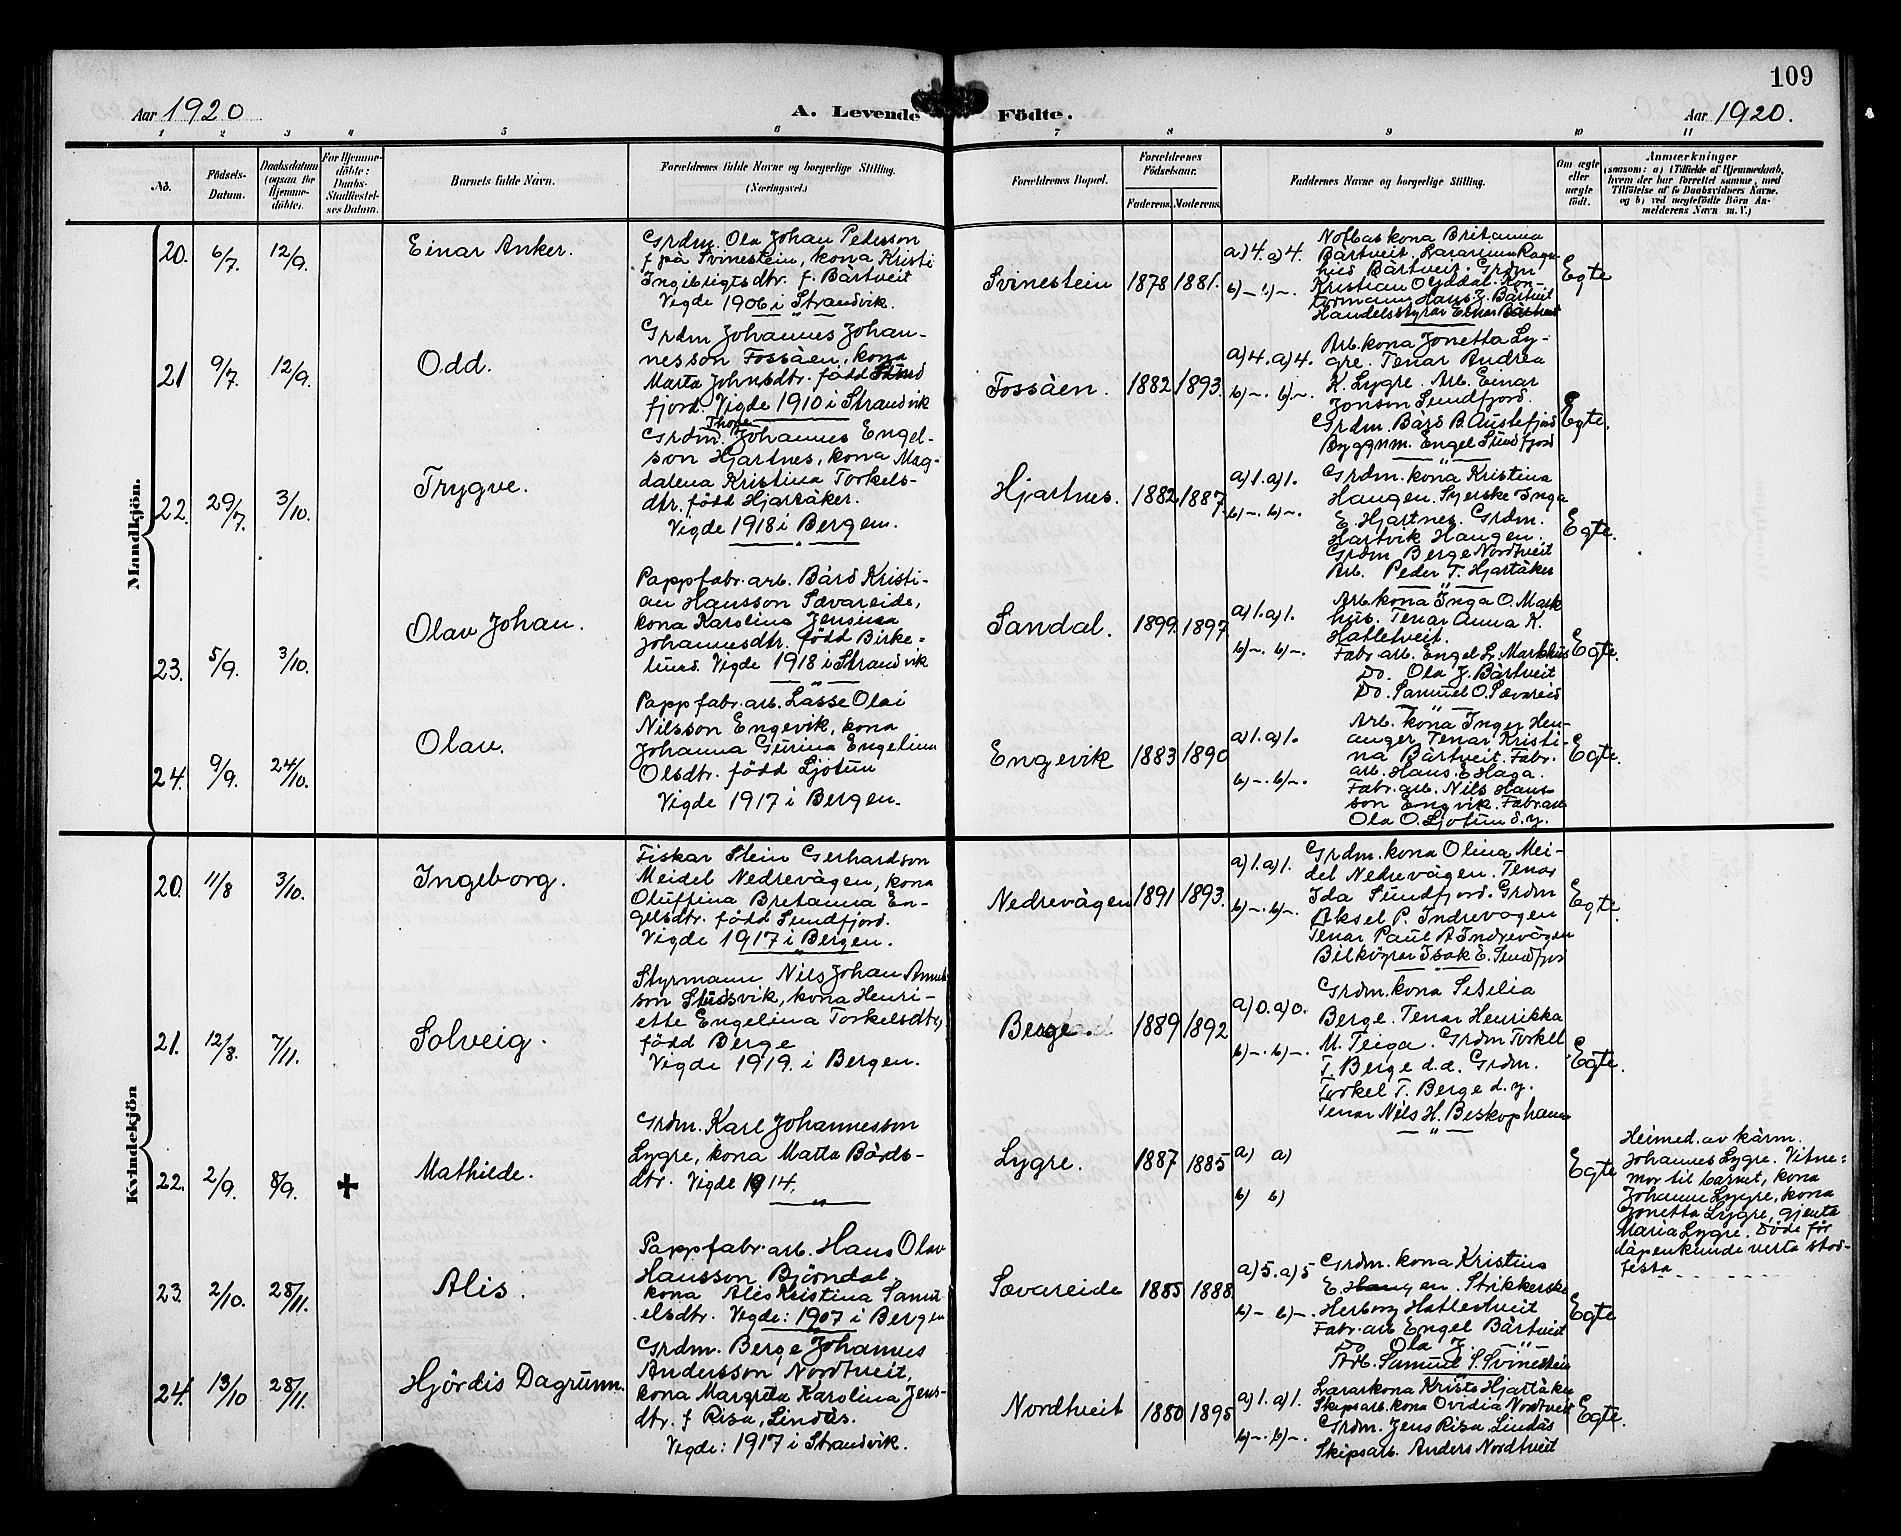 109
Aar 1920
A. Levende Födte.
Aar 1920.
1 2 3 4 5 6 7 8 9 10 11
No.
Födsels-
Datum.
Daabsdatum
(ogsaa for
Hjemme-
döbte).
For Hjemme-
döbte:
Daabs-
Stadfæstel-
ses Datum.
Barnets fulde Navn.
Forældrenes fulde Navne og borgerlige Stilling.
(Næringsvei.)
Forældrenes Bopæl.
Forældrenes
Födselsaar.
Faderens. Moderens.
Faddernes Navne og borgerlige Stilling.
Om ægte
eller
uægte
födt.
Anmærkninger
(saasom: a) i Tilfælde af Hjemmedaab,
hvem der har forrettet samme, med
Tilföielse af to Daabsvidners Navne,
og b) ved uægtefödte Börn An-
melderens Navn m. V.)
Mandkjön.
20. 6/7. 12/9.
Einar Anker.
Grdm. Ola Johan Pederson
f på Svinestein, kona Kristi
Ingebrigtsdtr. f. Bårtveit
Vigde 1906 i Strandvik.
Svinestein
1878 1881.
a) 4. a) 4.
b) – b) –.
Notbaskona Britanna
Bårtveit. Lararinna Ragn-
hild Bårtveit. Grdm
Kristian O Yddal. Kon-
tormann Hans J. Bårtveit
Handelsstyrar Einar Bårtveit
Egte
21 9/7. 12/9.
Odd.
Grdm Johannes Johan-
nesson Fossåen, kona
Marta Johnsdtr. född Sund
fjord. Vigde 1910 i Strandvik
Fossåen.
1882 1893.
a) 4. a) 4.
b) –. b) –.
Arb. kona Jonetta Ly-
gre. Tenar Andrea
K. Lygre. Arb. Einar
Jonson Sundfjord.
Grdm. Bård B. Austefjord
Byggnm. Engel Sundfjord
Egte.
22. 29/7. 3/10.
Trygve.
Grdm. Johannes Engel-
son Hjartnes, kona Mag-
dalena Kristina Torkels-
dtr. född Hjartåker.
Vigde 1918 i Bergen.
Hjartnes.
1882 1887.
a) 1. a) 1.
b) –. b) –.
Grdm. kona Kristina
Haugen. Syerske Inga
E. Hjartnes. Grdm.
Hartvik Haugen.
Grdm Berge Nordtveit
Arb. Peder T. Hjartåker
Egte.
23. 5/9. 3/10.
Olav Johan.
Pappfabr. arb. Bård Kristi-
an Hansson Sævareide,
kona Karolina Jensina
Johannesdtr. född Birke-
lund. Vigde 1918 i Strandvik
Sandal.
1899. 1897.
a) 1. a) 1.
b) –. b) –.
Arb. kona Inga O. Mark
hus. Tenar Anna K.
Hatletveit.
Fabr arb. Engel L. Markhus
Do. Ola J. Bårtveit
Do. Samuel O. Sævareid
Egte.
24. 9/9. 24/10.
Olav.
Pappfabr. arb. Lasse Olai
Nilsson Engevik, kona
Johanna Gurina Engelina
Olsdtr. född Ljotun
Vigde 1917 i Bergen.
Engevik
1883 1890
a) 1. a) 1.
b) –. b) –.
Arb. kona Inger Hen-
anger Tenar Kristi-
na Bårtveit. Fabr.
arb. Hans. E Haga.
Fabr. arb. Nils Hans
son Engvik. Fabr. arb
Ola O. Ljotun d. y.
Egte.
Kvindekjön
20. 11/8 3/10.
Ingeborg.
Fiskar Stein Gerhardson
Meidel Nedrevågen, kona
Oluffina Britanna En-
gelsdtr. född Sundfjord.
Vigde 1917 i Bergen.
Nedrevågen
1891 1893.
a) 1. a) 1.
b) –. b) –.
Grdm. kona Olina Mei-
del Nedrevågen. Tenar
Ida Sundfjord. Grdm
Aksel P. Indrevågen
Tenar Paul A Indrevågen
Bilköyrar Isak E. Sundfjor
Egte.
21. 12/8. 7/11.
Solveig.
Styrmann Nils Johan
son Stusvik, kona Henri-
ette Engelina Torkelsdtr,
född Berge
Vigde 1919. i Bergen.
Berge.
1889 1892
a) 0. a) 0.
b) –. b) –.
Grdm. kona Setelia
Berge. Tenar Henrikka
M. Teiga. Grdm Torkel
T. Berge d. e. Grdm.
Torkel T. Berge d. y.
Tenar Nils H. Beskophavn
Egte.
22. 2/9. 8/9. +
Mathilde.
Grdm. Karl Johannesson
Lygre, kona Marta Bårds-
dtr. Vigde 1914.
Lygre.
1887 1885
a) a)
b) b)
Egte
Heimed. av kårm.
Johannes Lygre. Vitne:
Mor til barnet, kona
Johanne Lygre, kona
Jonetta Lygre, gjenta
Maria Lygre. Döde för
dåpen kunde verta stad-
festa
23. 2/10. 28/11.
Alis.
Pappfabr. arb. Hans Olav
Hansson Björndal,
kona Alis Kristina Samu
elsdtr. Vigde: 1907 i Bergen
Sævareide
1885 1888
a) 5. a) 5
b) – b) –.
Grdm. kona Kristina
E. Haugen. Strikkerske
Herborg Hatlestveit
Fabr. arb Engel Bårtveit
Do Ola J. –"–
Arb. Samuel S. Svinestein
Egte
24. 13/10 28/11.
Hjördis Dagrunn.
Grdm. Berge Johannes
Andersson Nordtveit,
kona Margreta Karolina Jens-
dtr. f Risa, Lindås.
Vigde: 1917 i Strandvik.
Nordtveit
1880 1895
a) 1. a) 1.
b) –. b) –.
Lararkona Kristi Hjartåker
Skipsarb. kona Ovidia Nordtveit
Grdm. Jens Risa, Lindås
Skipsarb. Anders Nordtveit
Egte.